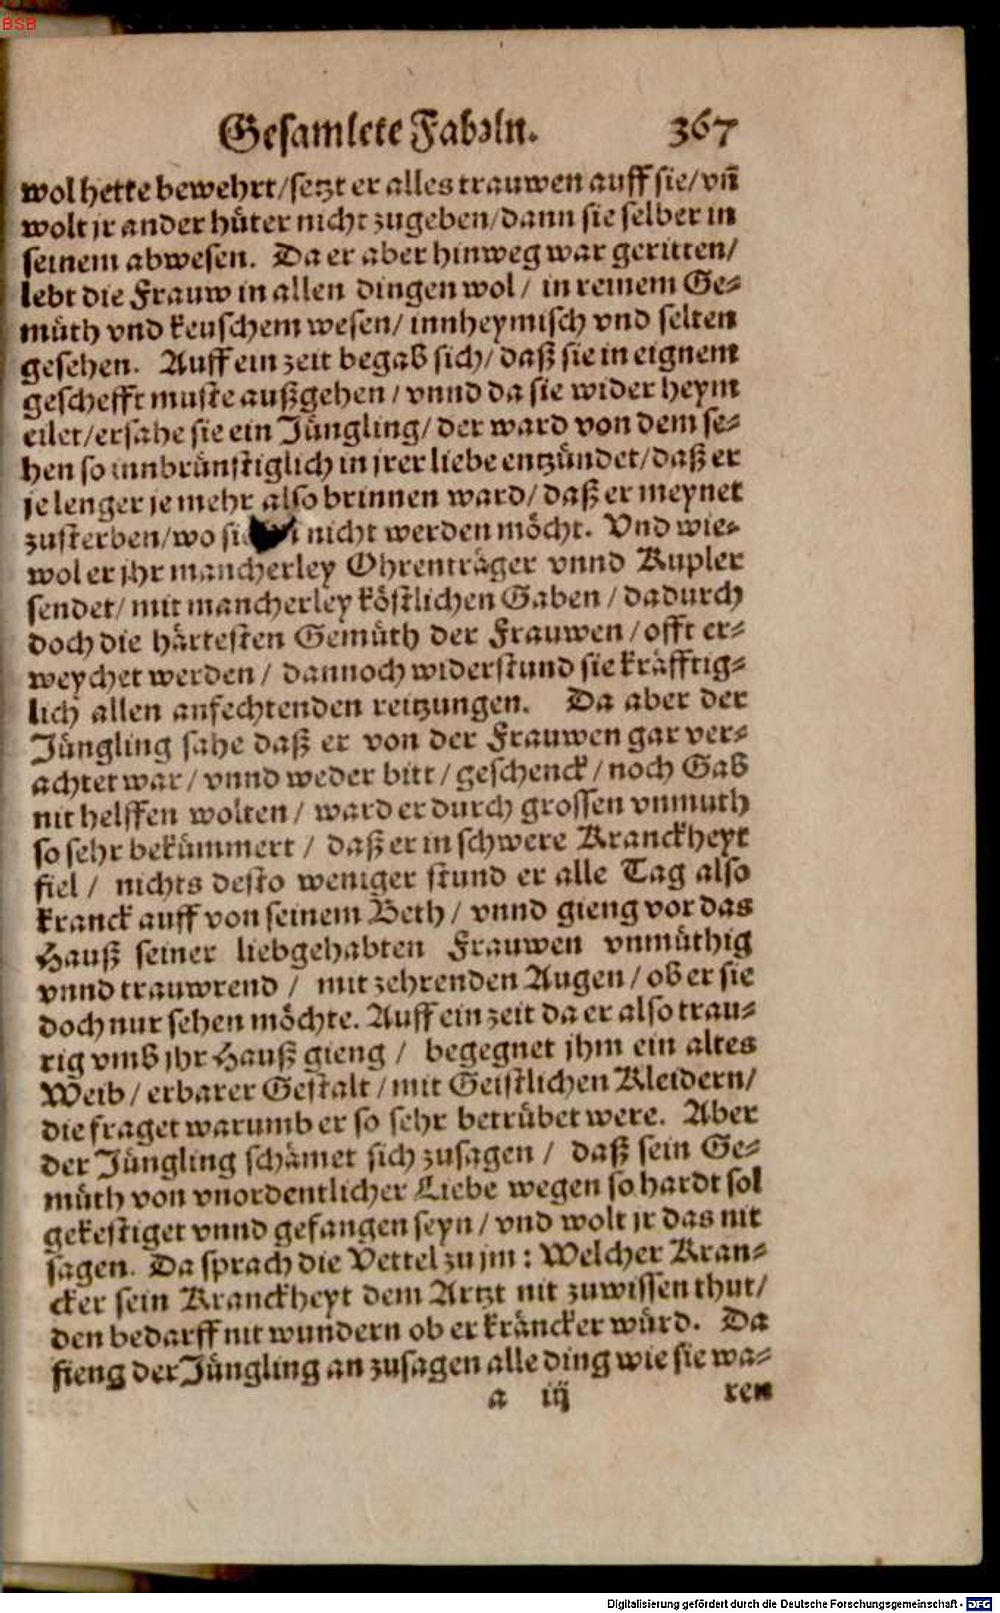 BSB
Gesamlete Fabeln. 367
wol hette bewehrt/setzt er alles trauwen auff sie/vñ
wolt jr ander hüter nicht zugeben/dann sie selber in
seinem abwesen. Da er aber hinweg war geritten/
lebt die Frauw in allen dingen wol/ in reinem Ge-
müth vnd keuschem wesen/ innheymisch vnd selten
gesehen. Auff ein zeit begab sich/ daß sie in eignem
geschefft muste außgehen/ vnnd da sie wider heym
eilet/ersahe sie ein Jüngling/ der ward von dem se-
hen so innbrünstiglich in jrer liebe entzündet/daß er
je lenger je mehr also brinnen ward/ daß er meynet
zusterben/wo nicht werden möcht. Vnd wie-
wol er jhr mancherley Ohrenträger vnnd Kupler
sendet/ mit mancherley köstlichen Gaben/ dadurch
doch die härtesten Gemüth der Frauwen/ offt er-
weychet werden/ dannoch widerstund sie kräfftig-
lich allen anfechtenden reitzungen. Da aber der
Jüngling sahe daß er von der Frauwen gar ver-
achtet war/ vnnd weder bitt/ geschenck/ noch Gab
nit helffen wolten/ ward er durch grossen vnmuth
so sehr bekümmert/ daß er in schwere Kranckheyt
fiel/ nichts desto weniger stund er alle Tag also
kranck auff von seinem Beth/ vnnd gieng vor das
Hauß seiner liebgehabten Frauwen vnmüthig
vnnd trauwrend/ mit zehrenden Augen/ ob er sie
doch nur sehen möchte. Auff ein zeit da er also trau-
rig vmb jhr Hauß gieng/ begegnet jhm ein altes
Weib/ erbarer Gestalt/ mit Geistlichen Kleidern/
die fraget warumb er so sehr betrübet were. Aber
der Jüngling schämet sich zusagen/ daß sein Ge-
müth von vnordentlicher Liebe wegen so hardt sol
gekestiget vnnd gefangen seyn/ vnd wolt jr das nit
sagen. Da sprach die Vettel zu jm: Welcher Kran-
cker sein Kranckheyt dem Artzt nit zuwissen thut/
den bedarff nit wundern ob er kräncker würd. Da
fieng der Jüngling an zusagen alle ding wie sie wa-
a iij ren
Digitalisierung gefördert durch die Deutsche Forschungsgemeinschaft - DFG